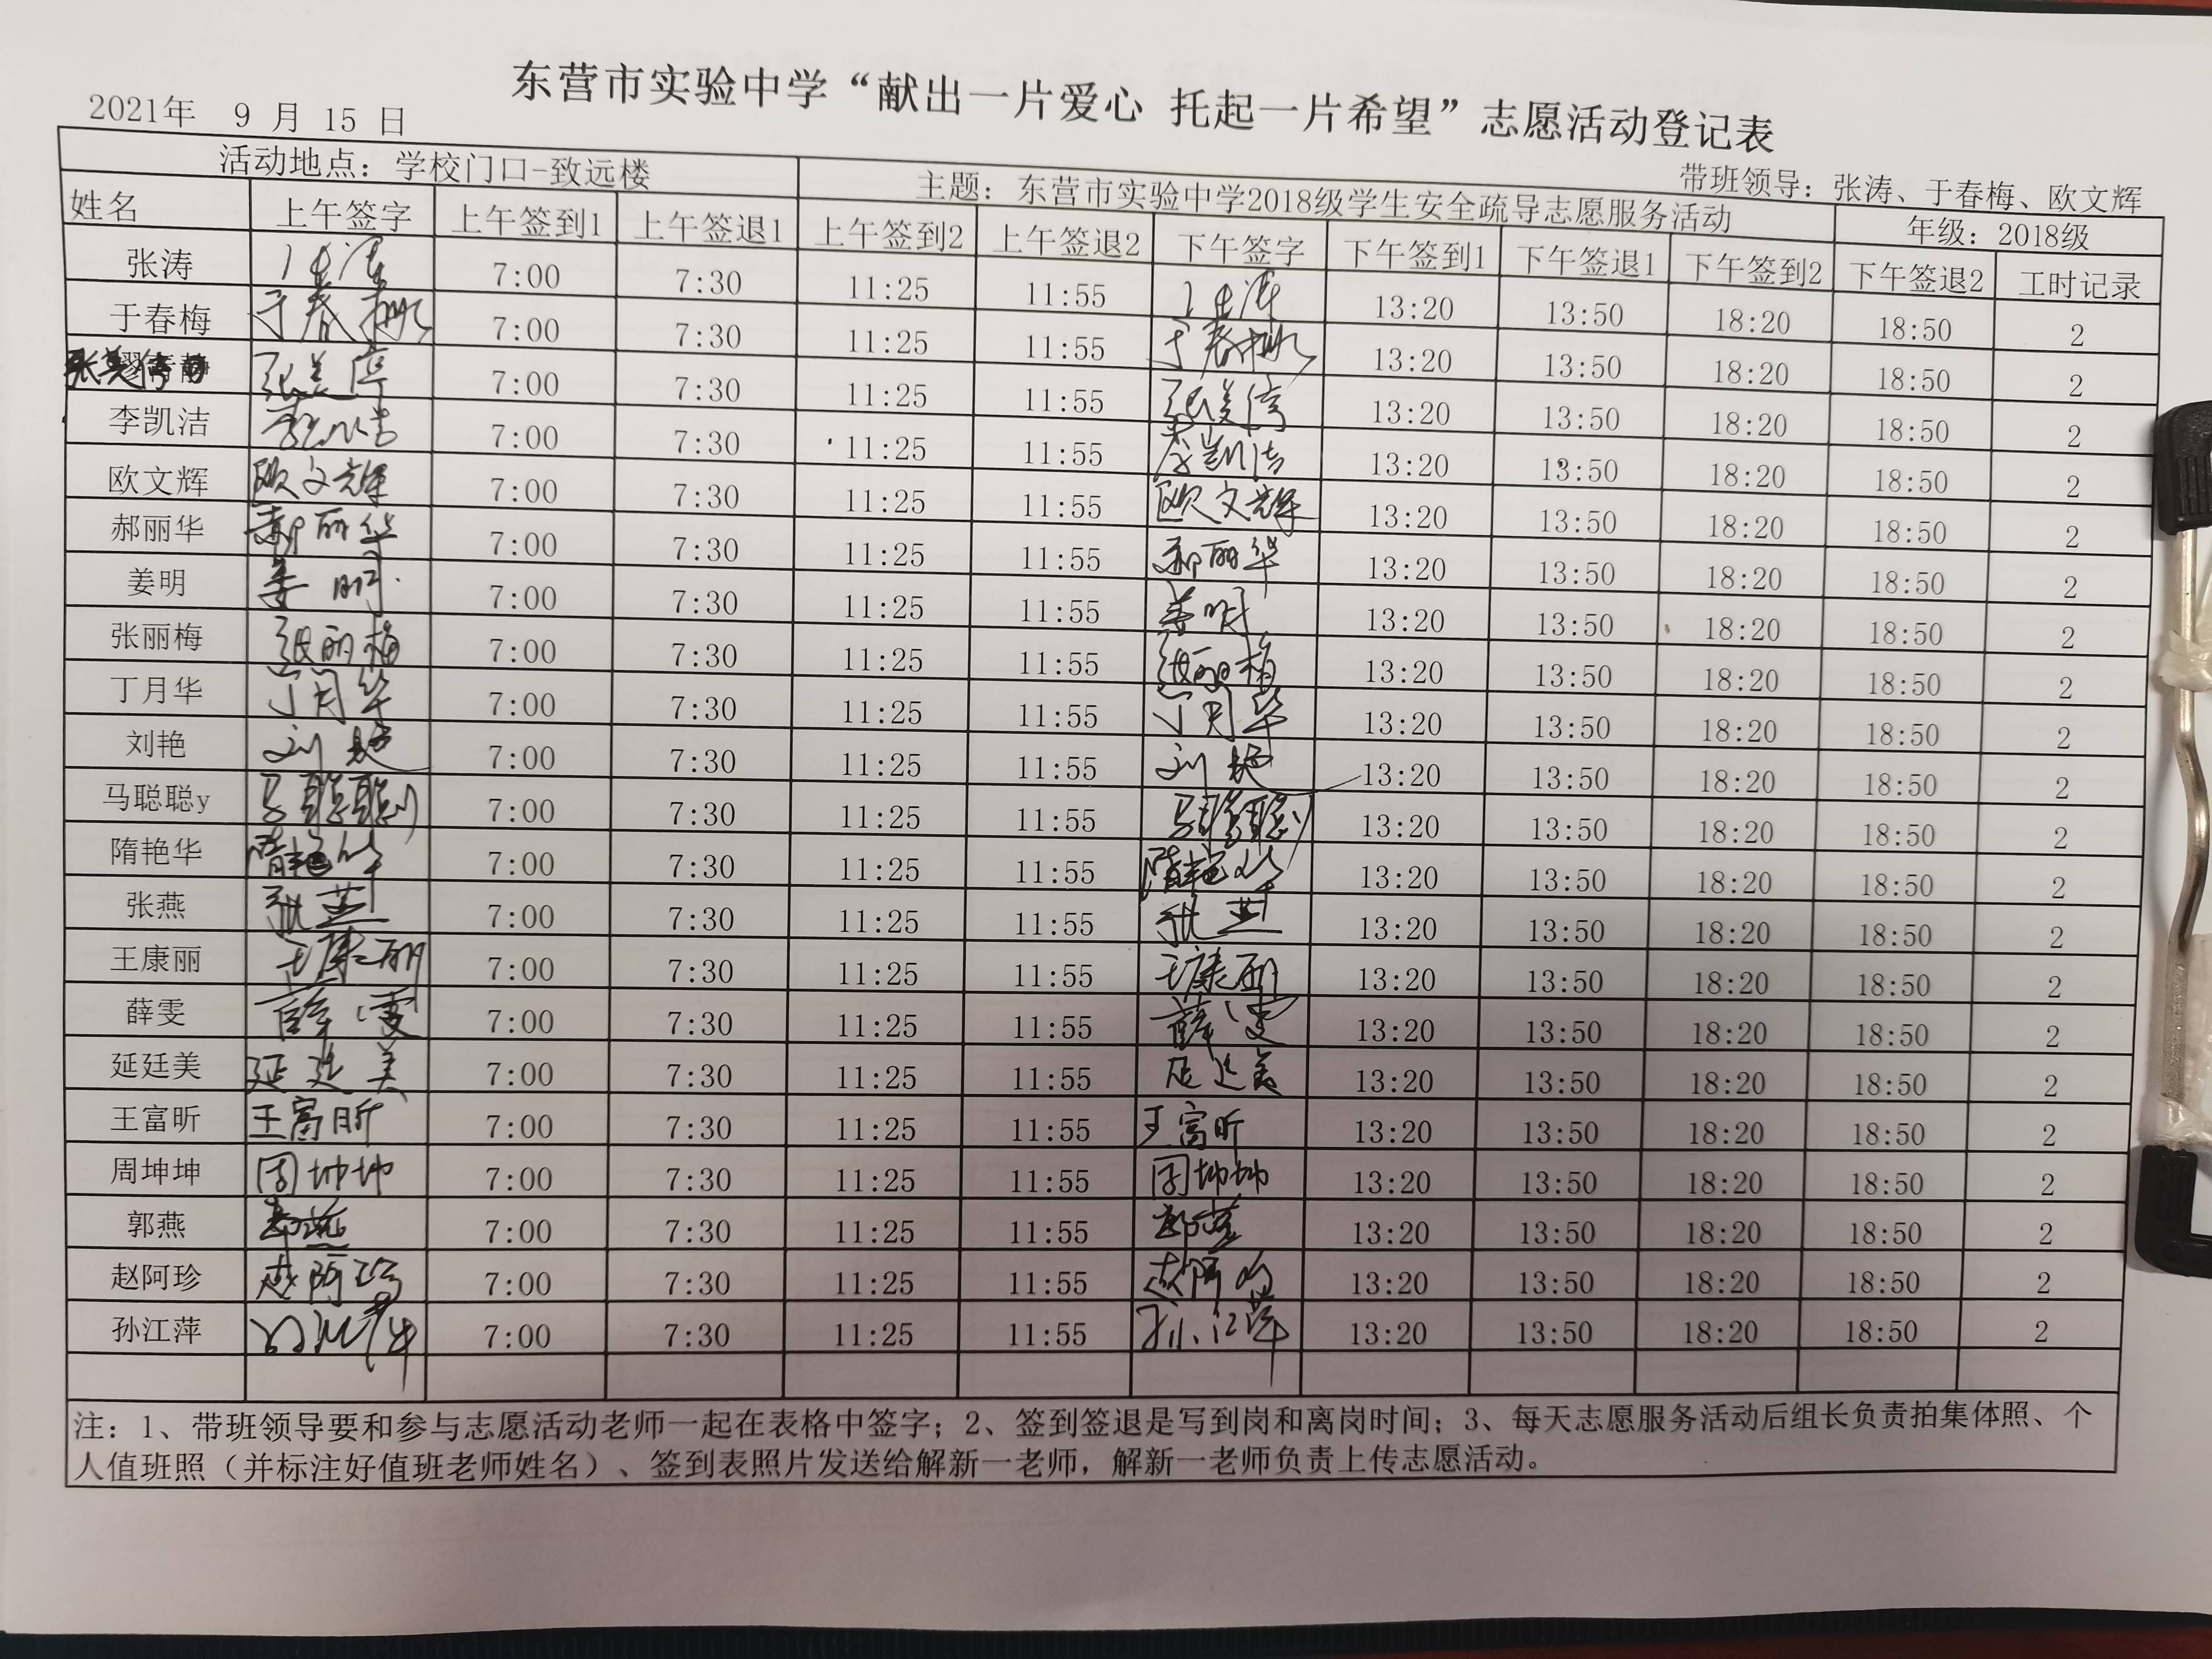 东营市实验中学“献出一片爱心 托起一片希望”志愿活动登记表
2021年 9 月 15 日
带班领导：张涛、于春梅、欧文辉
活动地点：学校门口-致远楼 主题：东营市实验中学2018级学生安全疏导志愿服务活动 年级：2018级
姓名 上午签字 上午签到1 上午签退1 上午签到2 上午签退2 下午签字 下午签到1 下午签退1 下午签到2 下午签退2 工时记录
张涛 张涛 7:00 7:30 11:25 11:55 张涛 13:20 13:50 18:20 18:50 2
于春梅 于春梅 7:00 7:30 11:25 11:55 于春梅 13:20 13:50 18:20 18:50 2
张美 张美 7:00 7:30 11:25 11:55 张美 13:20 13:50 18:20 18:50 2
李凯洁 李凯洁 7:00 7:30 11:25 11:55 李凯洁 13:20 13:50 18:20 18:50 2
欧文辉 欧文辉 7:00 7:30 11:25 11:55 欧文辉 13:20 13:50 18:20 18:50 2
郝丽华 郝丽华 7:00 7:30 11:25 11:55 郝丽华 13:20 13:50 18:20 18:50 2
姜明 姜明 7:00 7:30 11:25 11:55 姜明 13:20 13:50 18:20 18:50 2
张丽梅 张丽梅 7:00 7:30 11:25 11:55 张丽梅 13:20 13:50 18:20 18:50 2
丁月华 丁月华 7:00 7:30 11:25 11:55 丁月华 13:20 13:50 18:20 18:50 2
刘艳 刘艳 7:00 7:30 11:25 11:55 刘艳 13:20 13:50 18:20 18:50 2
马聪聪y 马聪聪y 7:00 7:30 11:25 11:55 马聪聪y 13:20 13:50 18:20 18:50 2
隋艳华 隋艳华 7:00 7:30 11:25 11:55 隋艳华 13:20 13:50 18:20 18:50 2
张燕 张燕 7:00 7:30 11:25 11:55 张燕 13:20 13:50 18:20 18:50 2
王康丽 王康丽 7:00 7:30 11:25 11:55 王康丽 13:20 13:50 18:20 18:50 2
薛雯 薛雯 7:00 7:30 11:25 11:55 薛雯 13:20 13:50 18:20 18:50 2
延廷美 延廷美 7:00 7:30 11:25 11:55 延廷美 13:20 13:50 18:20 18:50 2
王富昕 王富昕 7:00 7:30 11:25 11:55 王富昕 13:20 13:50 18:20 18:50 2
周坤坤 周坤坤 7:00 7:30 11:25 11:55 周坤坤 13:20 13:50 18:20 18:50 2
郭燕 郭燕 7:00 7:30 11:25 11:55 郭燕 13:20 13:50 18:20 18:50 2
赵阿珍 赵阿珍 7:00 7:30 11:25 11:55 赵阿珍 13:20 13:50 18:20 18:50 2
孙江萍 孙江萍 7:00 7:30 11:25 11:55 孙江萍 13:20 13:50 18:20 18:50 2
注：1、带班领导要和参与志愿活动老师一起在表格中签字；2、签到签退是写到岗和离岗时间；3、每天志愿服务活动后组长负责拍集体照、个
人值班照（并标注好值班老师姓名）、签到表照片发送给解新一老师，解新一老师负责上传志愿活动。